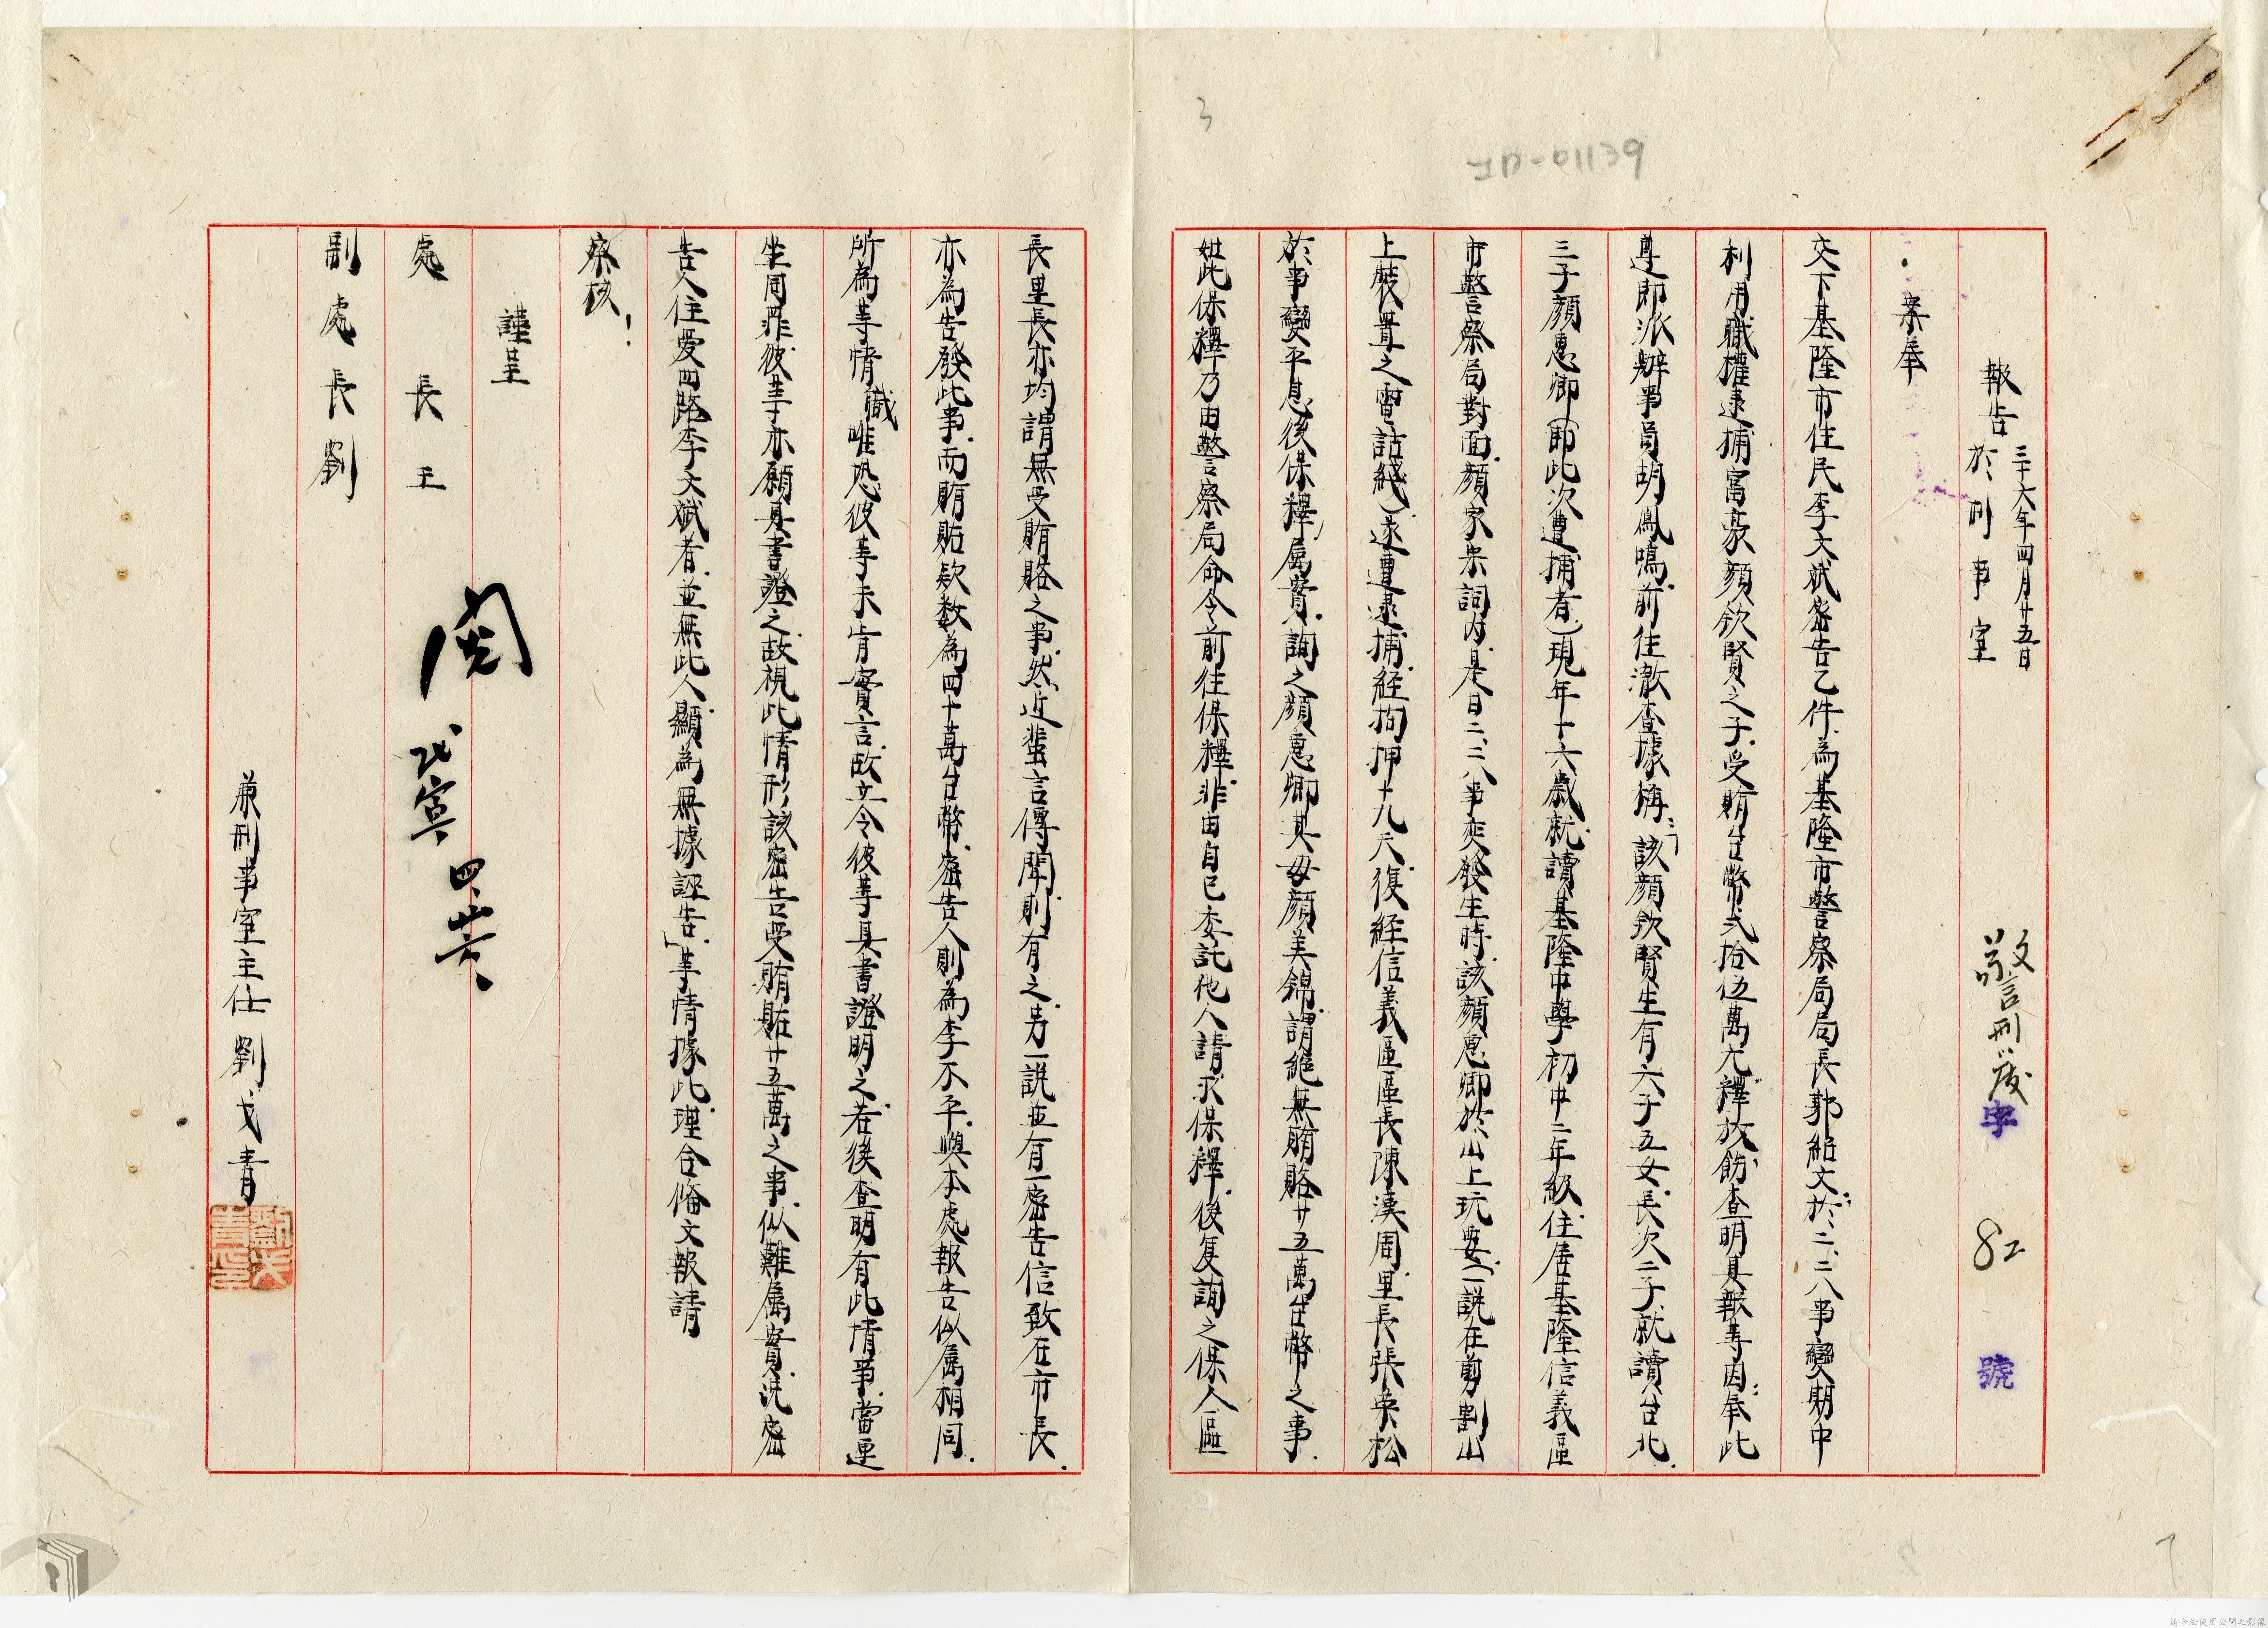 3
ID-01139
報告 三十六年四月廿五日
於刑事室
警刑俊字82號
案奉
交下基隆市住民李文斌密告乙件為基隆市警察局局長郭紹文於二、二八事變期中
利用職權逮捕富豪顏欽賢之子受賄台幣弍拾伍萬元釋放飭查明具報等因奉此
遵即派辦事員胡鳳鳴前往澈查據稱：「該顏欽賢生有六子五女長次二子就讀台北
三子顏惠卿（即此次遭捕者）現年十六歲就讀基隆中學初中二年級住居基隆信義區
市警察局對面顏家祟詞內是日二、二八事変發生時該顏惠卿於山上玩耍（一說在剪割山
上裝置之電話綫）遂遭逮捕経拘押十九天復経信義區區長陳漢周里長張英松
於事變平息後保釋屬實詢之顏惠卿其母顏美錦謂絕無賄賂廿五萬台幣之事
如此保釋乃由警察局命令前往保釋非由自己委託他人請求保釋後复詢之保人區
長里長亦均謂無受賄賂之事然近輩言傳聞則有之另一說並有一密告信致在市長
亦為告發此事而賄賂欵数為四十萬台幣密告人則為李不平與本處報告似屬相同
所為等情職唯恐彼等未肯實言故立令彼等具書證明之若後查明有此情事當連
坐同罪彼等亦願具書證之故視此情形該密告受賄賂廿五萬之事似難屬實況密
告人住愛四路李文斌者並無此人顯為無據誣告」等情據此理合僃文報請
察核！
謹呈
處長王
副處長劉
閱
四、廿六、
兼刑事室主任劉戈青
請合法使用公開之影像